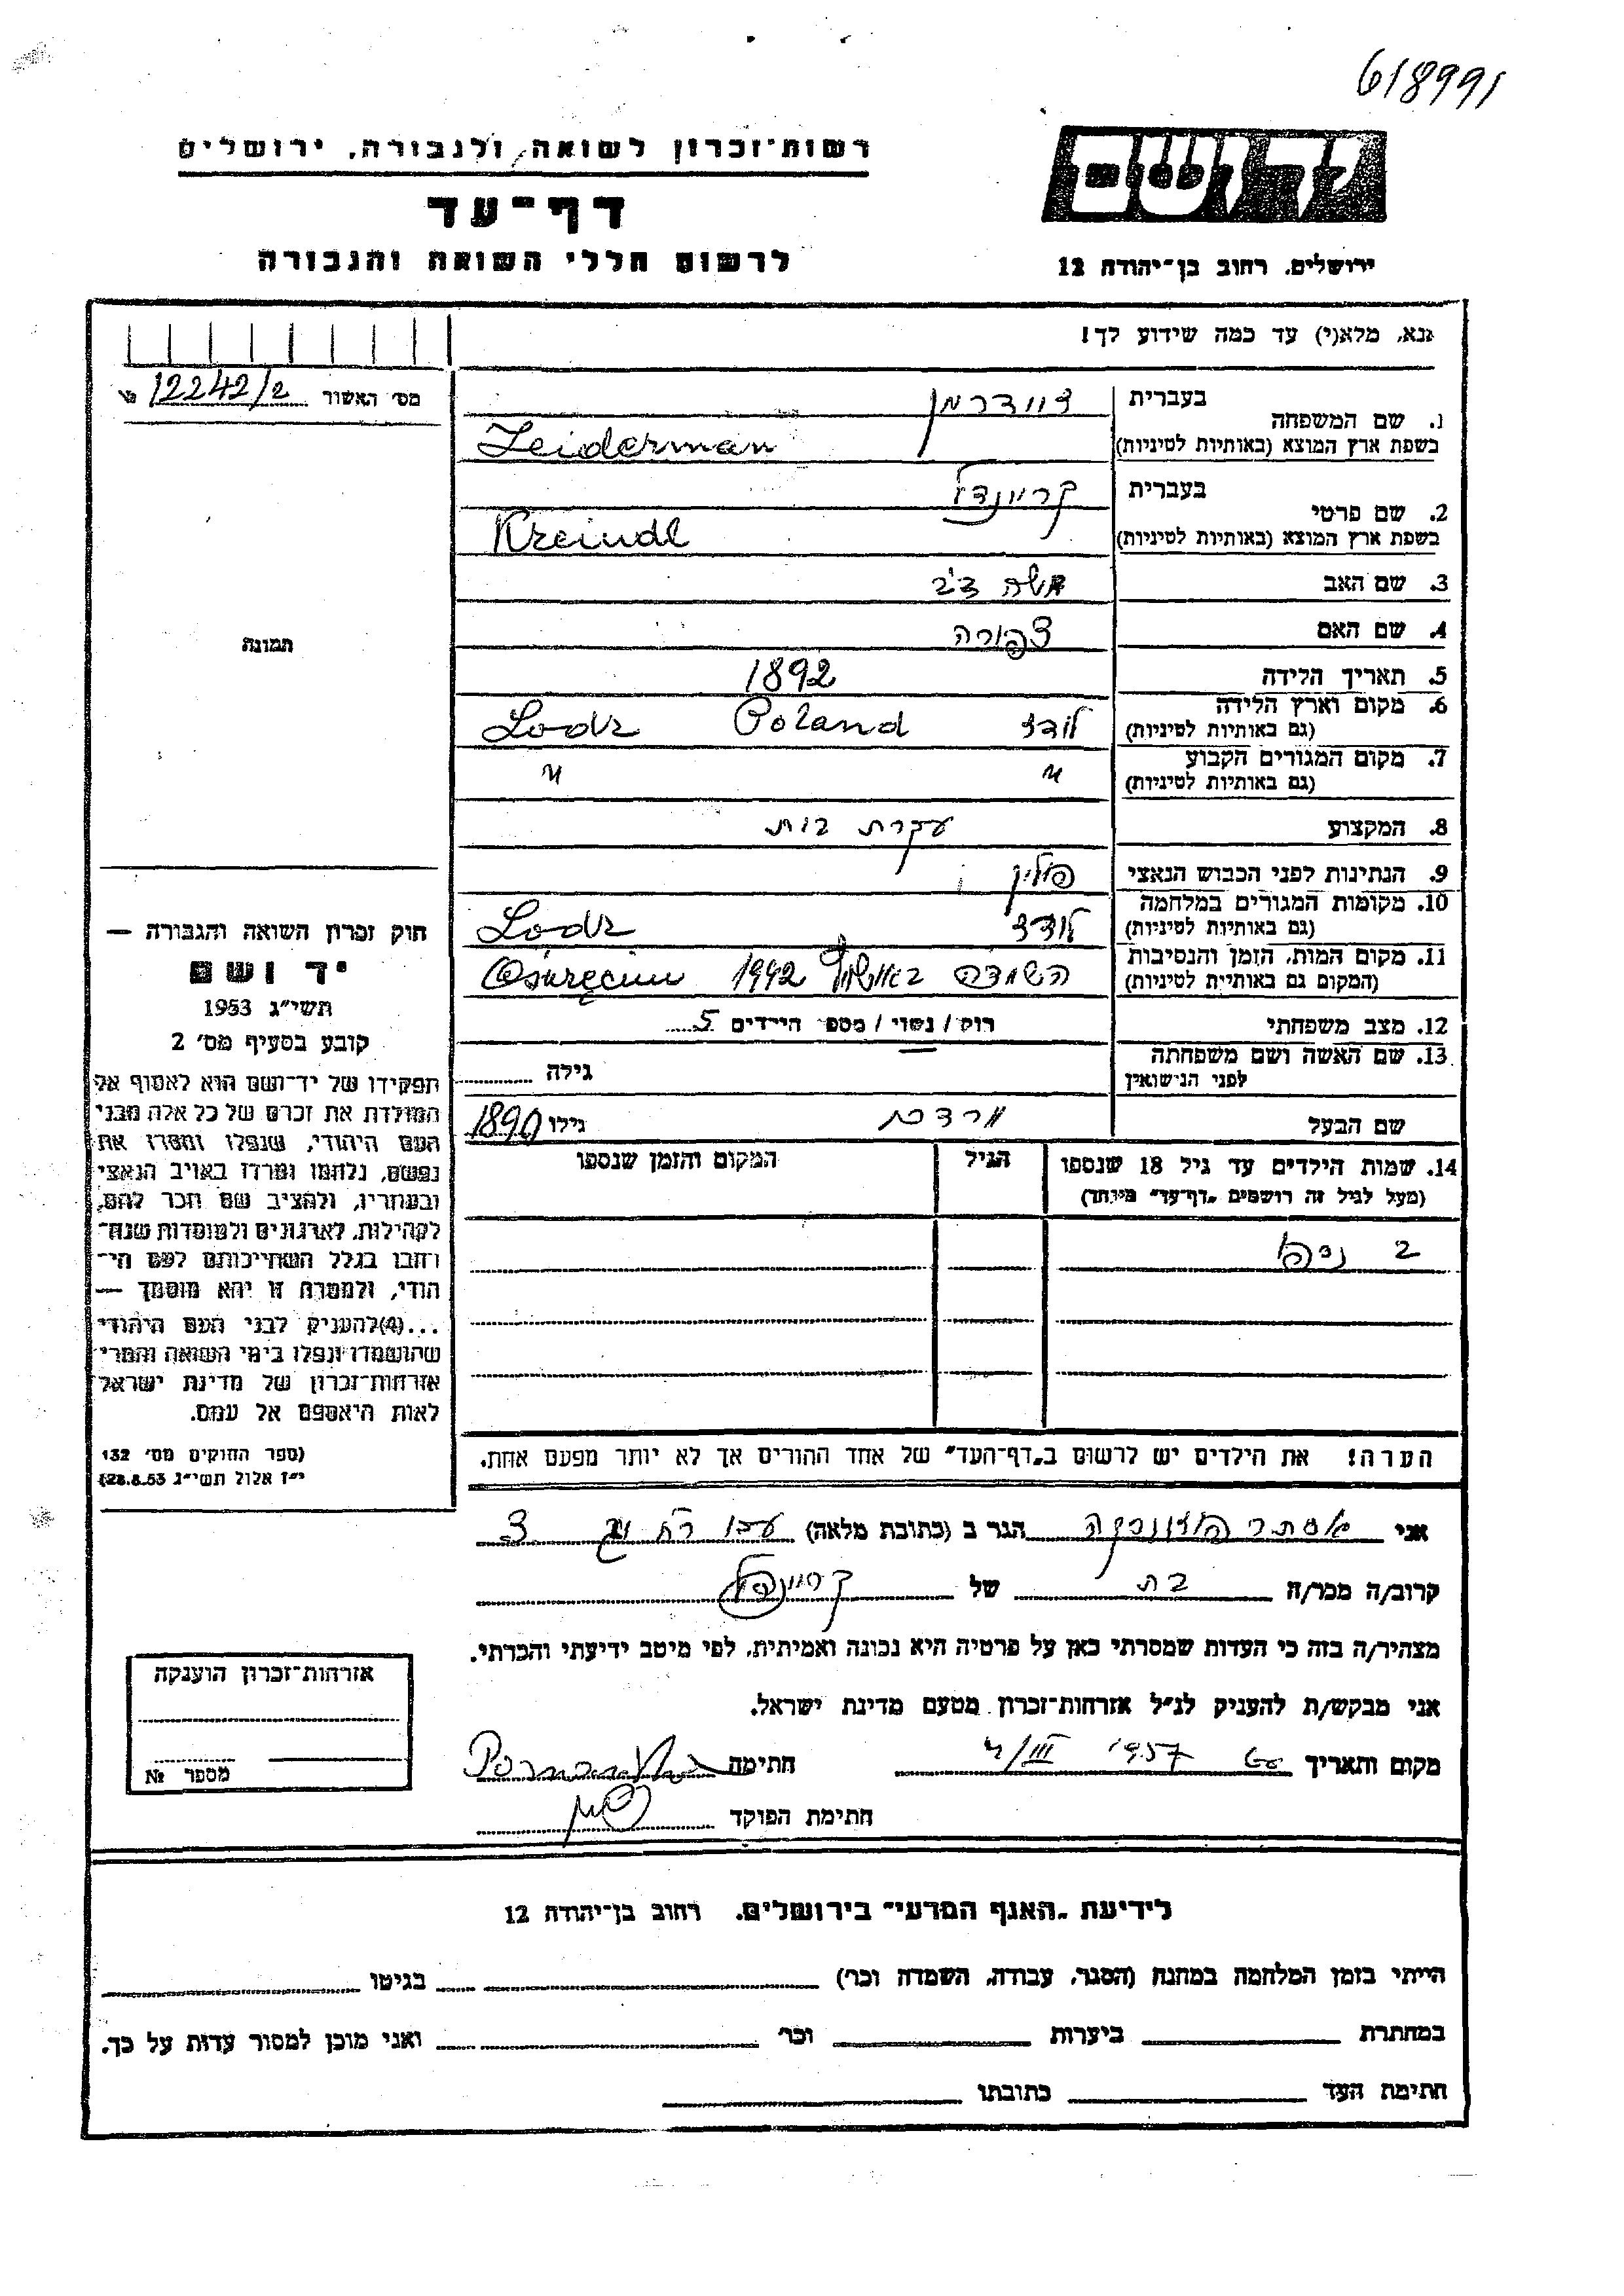 618991
יד ושם
רשות־זכרון לשואה ולגבורה, ירושלים
דף־עד
לרשום חללי השואה והגבורה
ירושלים, רחוב בן־יהודה 12
נא, מלא(י) עד כמה שידוע לך!
מס׳ האשור 12242/2
1. שם המשפחה
בעברית זיידרמן
בשפת ארץ המוצא (באותיות לטיניות) Zeiderman
2. שם פרטי
בעברית קריינדל
בשפת ארץ המוצא (באותיות לטיניות) Kreindl
3. שם האב משה
4. שם האם צפורה
תמונה
5. תאריך הלידה 1892
6. מקום וארץ הלידה לודז Poland Lodz
(גם באותיות לטיניות)
7. מקום המגורים הקבוע " "
(גם באותיות לטיניות)
8. המקצוע עקרת בית
9. הנתינות לפני הכבוש הנאצי פולין
10. מקומות המגורים במלחמה לודז Lodz
(גם באותיות לטיניות)
11. מקום המות, הזמן והנסיבות השמדה 1942
(המקום גם באותיית לטיניות)
12. מצב משפחתי רוק / נשוי / מספ׳ הילדים 5
13. שם האשה ושם משפחתה
לפני הנישואין גילה
שם הבעל מרדכי גילו 1890
14. שמות הילדים עד גיל 18 שנספו הגיל המקום והזמן שנספו
(מעל לגיל זה רושמים "דף־עד" מיוחד)
2
הערה! את הילדים יש לרשום ב"דף־העד" של אחד ההורים אך לא יותר מפעם אחת.
חוק זכרון השואה והגבורה —
יד ושם
תשי״ג 1953
קובע בסעיף מס׳ 2
תפקידו של יד־ושם הוא לאסוף אל
המולדת את זכרם של כל אלה מבני
העם היהודי, שנפלו ומסרו את
נפשם, נלחמו ומרדו באויב הנאצי
ובעוזריו, ולהציב שם וזכר להם,
לקהילות, לארגונים ולמוסדות שנח־
רחבו בגלל השתייכותם לעם הי־
הודי, ולמטרה זו יהא מוסמך —
...(4)להעניק לבני העם היהודי
שהושמדו ונפלו בימי השואה והמרי
אזרחות־זכרון של מדינת ישראל
לאות היאספם אל עמם.
(ספר החוקים מס׳ 132
י״ז אלול תשי״ג 28.8.53)
אני אסתר הגר ב (כתובת מלאה) עכו
קרוב/ה מכר/ה בת של
מצהיר/ה בזה כי העדות שמסרתי כאן על פרטיה היא נכונה ואמיתית, לפי מיטב ידיעתי והכרתי.
אני מבקש/ת להעניק לנ״ל אזרחות־זכרון מטעם מדינת ישראל.
מקום ותאריך 1957 חתימה
חתימת הפוקד
אזרחות־זכרון הוענקה
מספר №
לידיעת "האגף המדעי" בירושלים, רחוב בן־יהודה 12
הייתי בזמן המלחמה במחנה (הסגר, עבודה, השמדה וכר) בגיטו
במחתרת ביערות וכר ואני מוכן למסור עדות על כך.
חתימת העד כתובתו